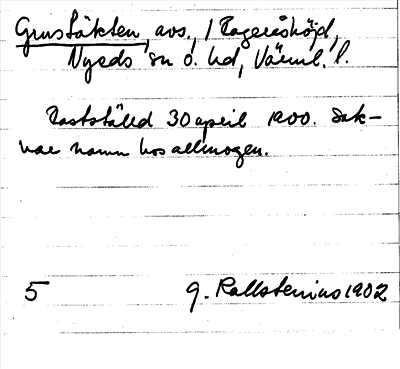 Grustäkten, avs., i Rageråshöjd,
Nyeds sn o. hd, Värml. l.
Fastställd 30 april 1900. Sak-
nar namn hos allmogen.
5 G. Kallstenius 1902